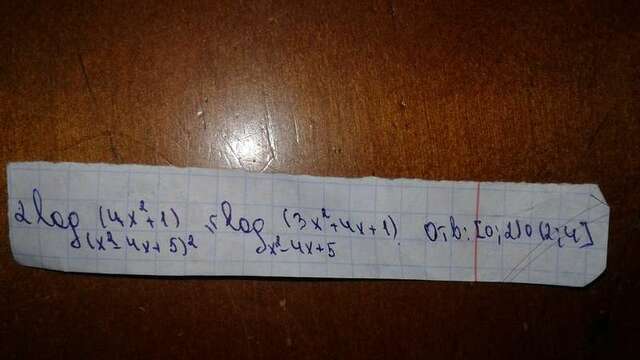 2 log_{(x²-4x+5)²} (4x²+1) ≤ log_{x²-4x+5} (3x²+4x+1). Отв: [0;2)∪(2;4]